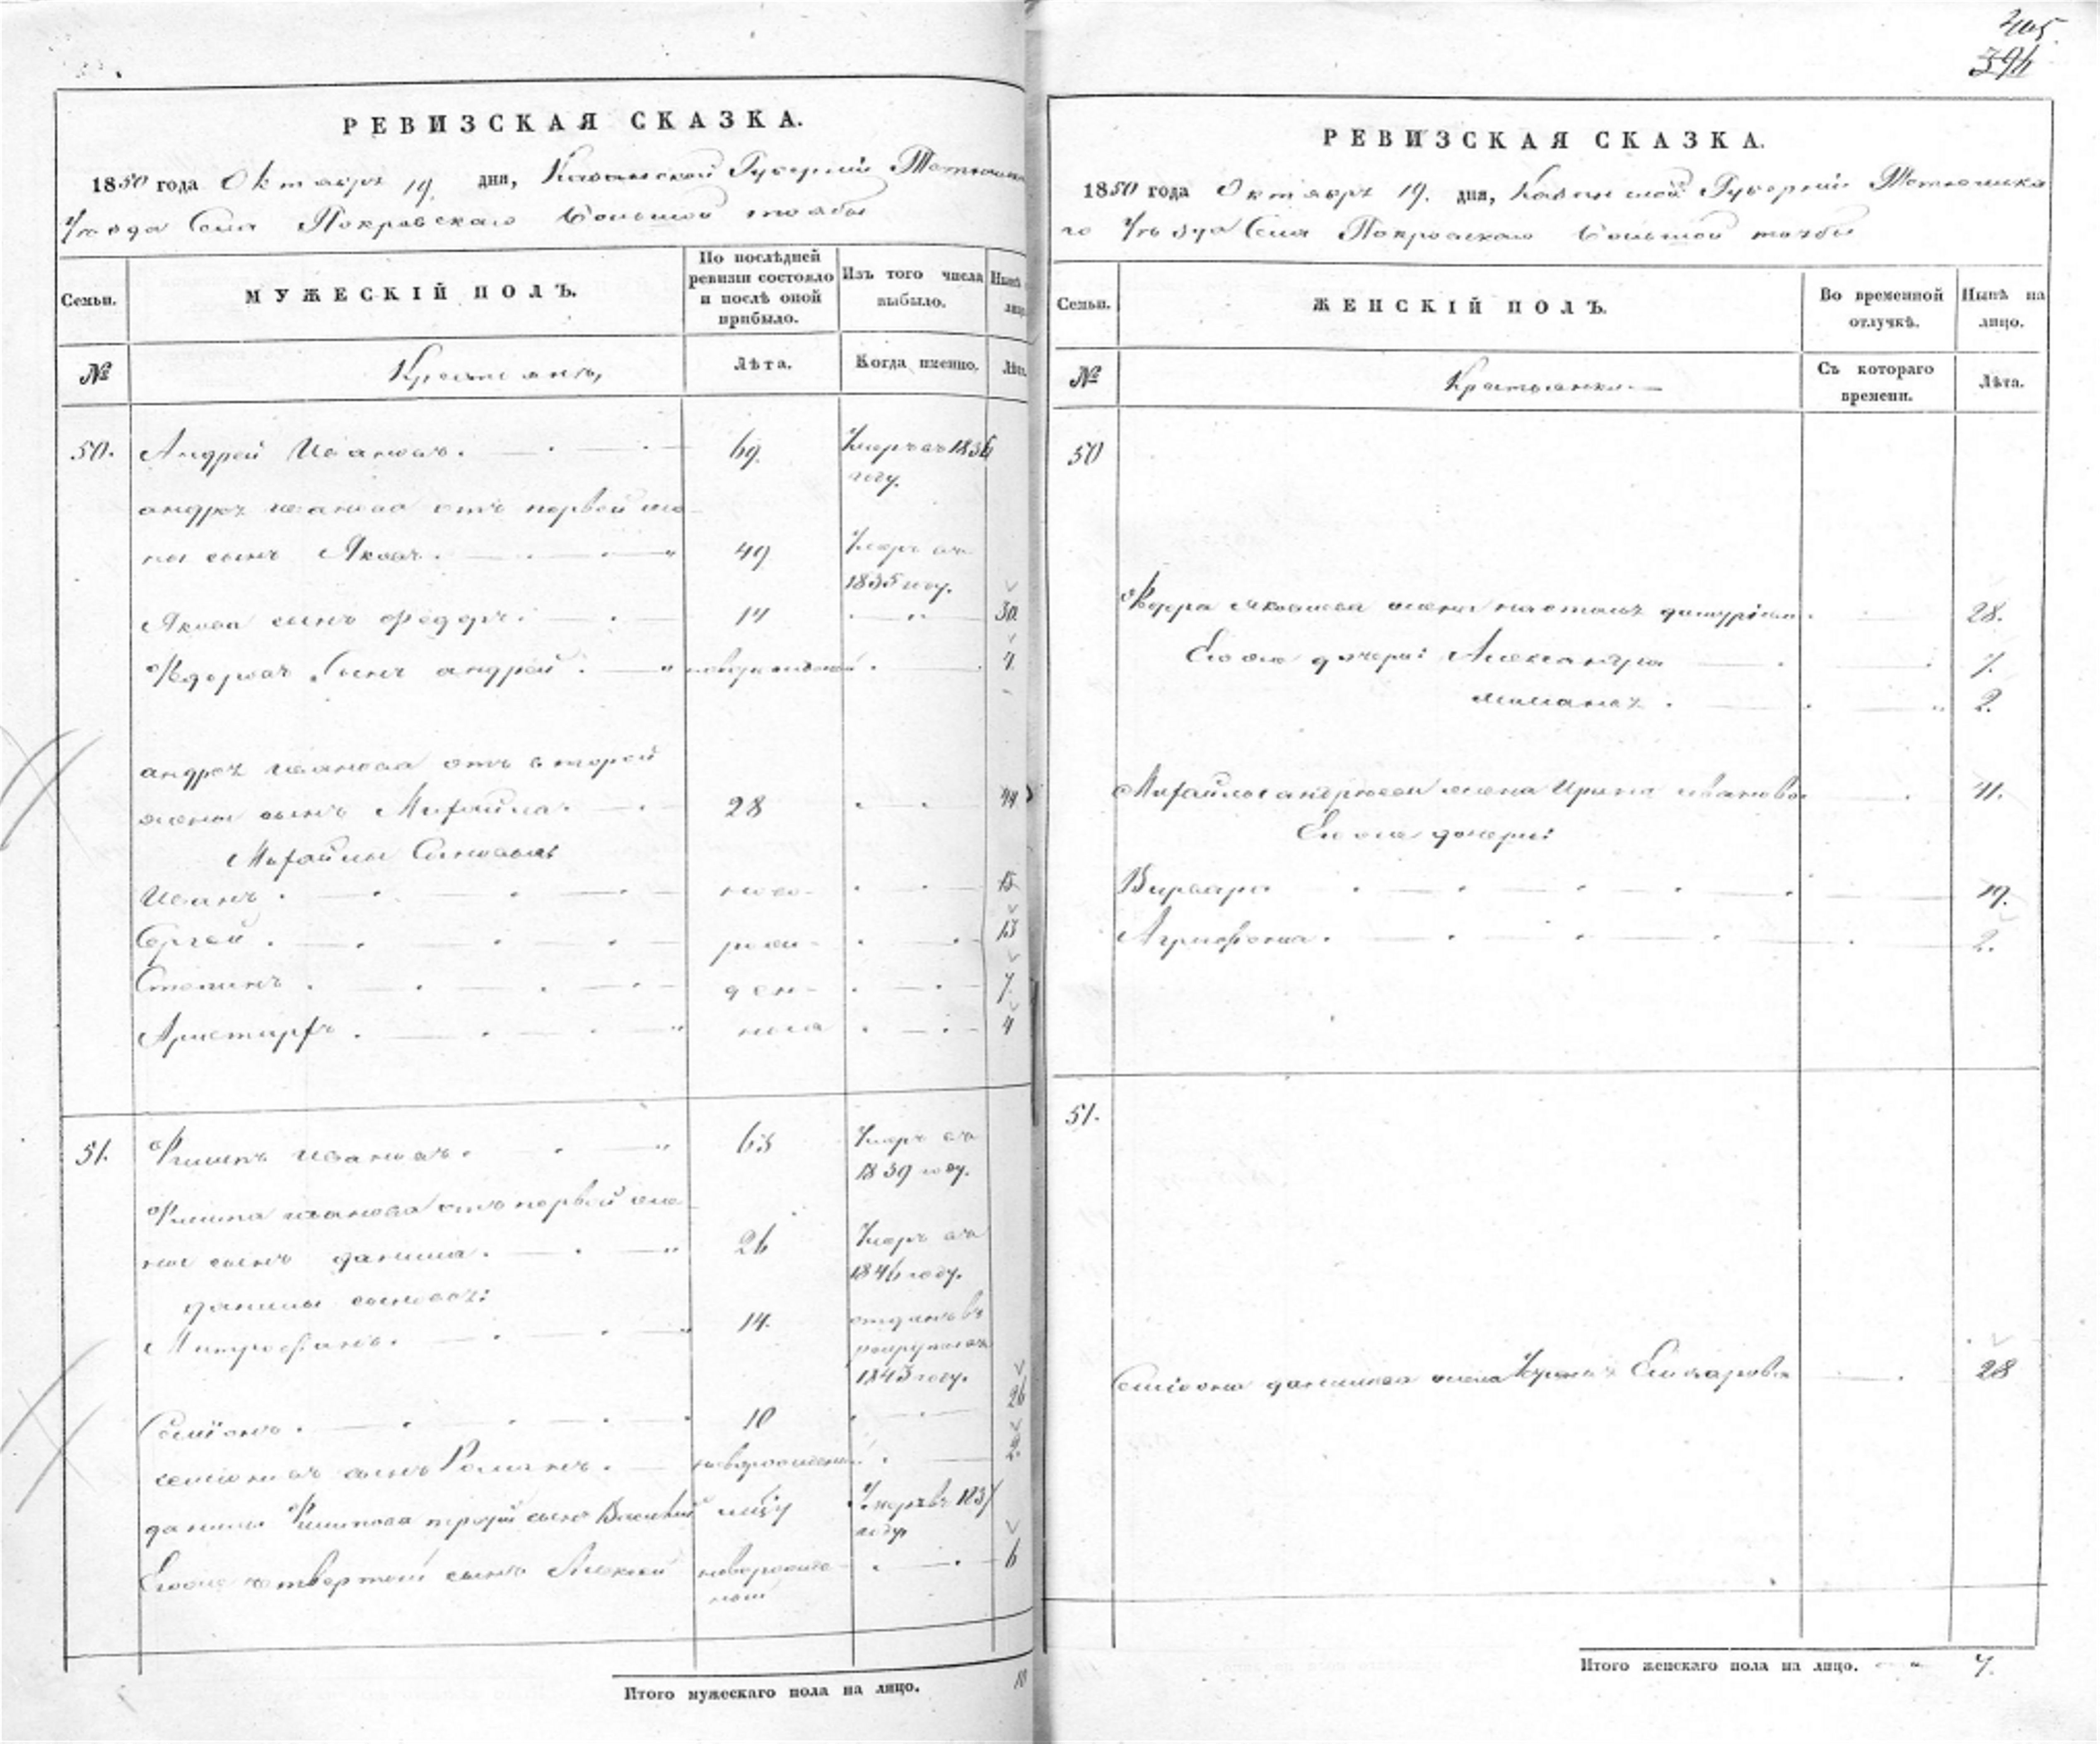 405.
394
РЕВИЗСКАЯ СКАЗКА.
1850 года Октября 19 дня, Казанской Губернiи Тетюшка
Уѣзда Села Покровскаго Большой тоябы
Семьи.
МУЖЕСКIЙ ПОЛЪ.
По послѣдней ревизiи состояло и послѣ оной прибыло.
Изъ того числа выбыло.
Нынѣ
лицо
№
Крестьянъ,
Лѣта.
Когда именно.
Лѣта.
50.
Андрей Ивановъ.
69.
Умеръ въ 1836
году.
андрея иванова отъ первой же
ны сынъ Яковъ.
49
Умеръ въ
1835 году.
Якова сынъ Федоръ.
14
30
Федоровъ Сынъ андрей.
новорожденой
4
андрея иванова отъ второй
жены сынъ Михайла.
28
44
Михайлы Сыновья
Иванъ.
ново-
15
Сергей.
рож-
13
Степанъ.
ден-
7.
Аристархъ.
ныя
4
51.
Филипъ Ивановъ.
63
Умеръ въ
1839 году.
Филипа иванова отъ первой же
ны сынъ данила.
26
Умеръ въ
1846 году.
данилы сыновья:
Митрофанъ.
14.
отданъ въ
рекруты въ
1843 году.
Семiонъ.
10
26
семiоновъ сынъ Романъ.
новорожденый
2.
данилы Филипова третiй сынъ Василий
Умеръ въ 1837
году
Егоже четвертой сынъ Алексей
новорожде-
ный
6
Итого мужескаго пола на лицо.
10
РЕВИЗСКАЯ СКАЗКА.
1850 года Октября 19. дня, Казанской Губернiи Тетюшска
го Уѣзда Села Покровскаго Большой тоябы
Семьи.
ЖЕНСКIЙ ПОЛЪ.
Во временной отлучкѣ.
Нынѣ на лицо.
№
Крестьянки.
Съ котораго времени.
Лѣта.
50
Федора яковлева жена настасья
28.
Его же дочери: Александра
7.
маланья.
2.
Михайлы андреева жена Ирина иванова
41.
Его же дочери:
Варвара.
19.
Аграфена.
2.
51.
Семiона данилова жена Елизарова
28
Итого женскаго пола на лицо.
7.